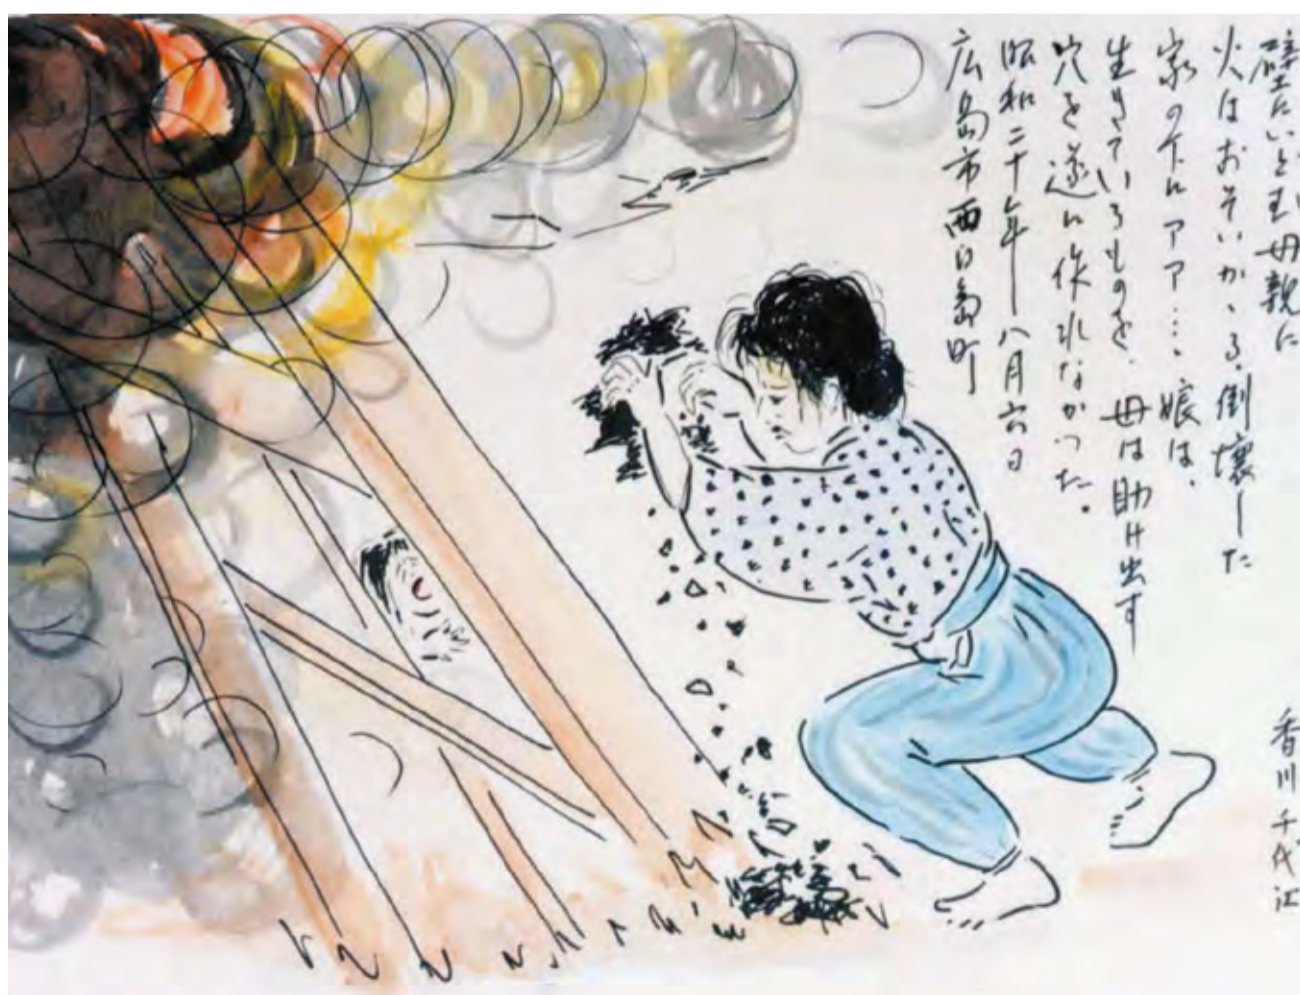 壁にいどむ母親に
火はおそいかゝる。倒壊した
家の下にアア……。娘は、
生きているものを、母は助け出す
穴を遂に作れなかった。
昭和二十年八月六日
広島市西白島町
香川千代江